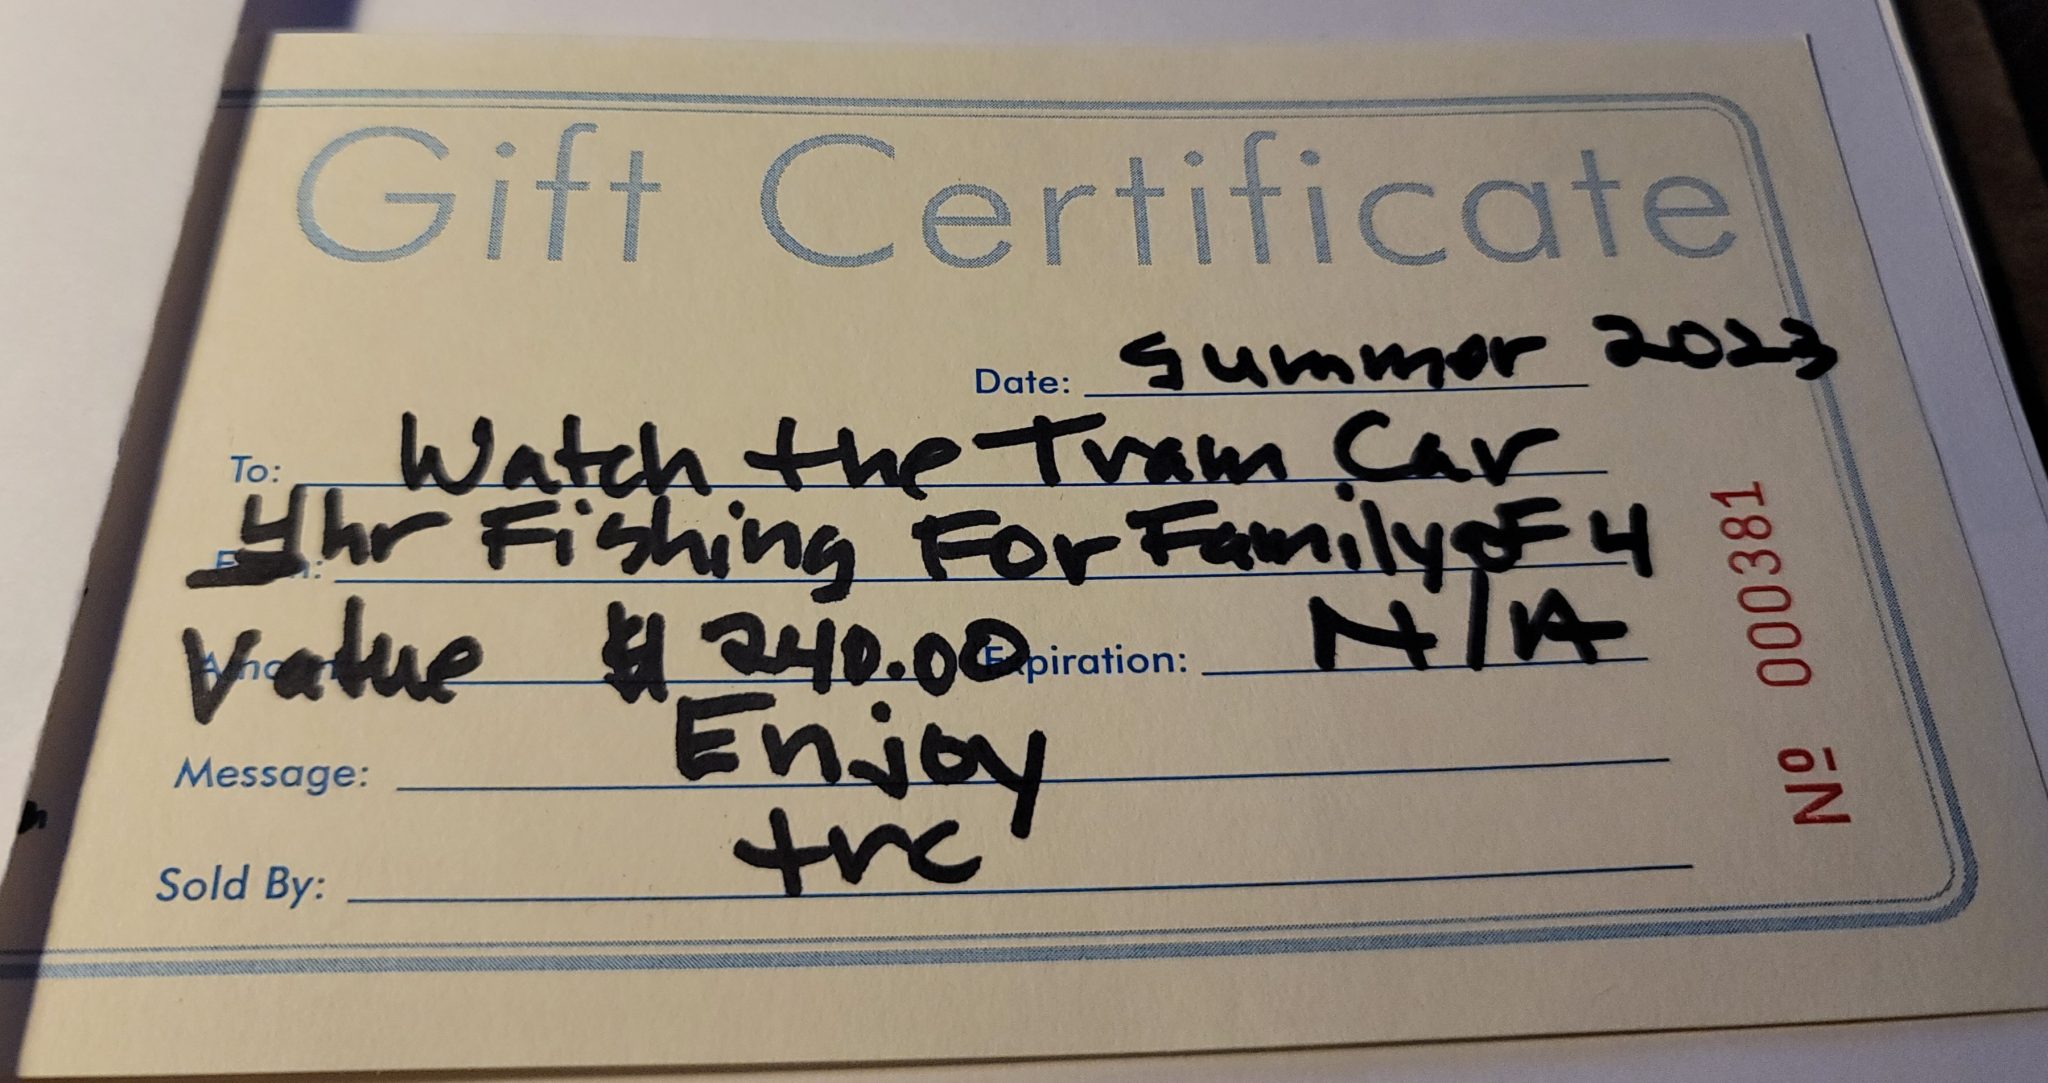 Gift Certificate
Date: Summer 2023
To: Watch the Tram Car
From: 4hr Fishing For Family of 4
Amount: Value $240.00 Expiration: N/A
Message: Enjoy
Sold By: trc
Nº 000381